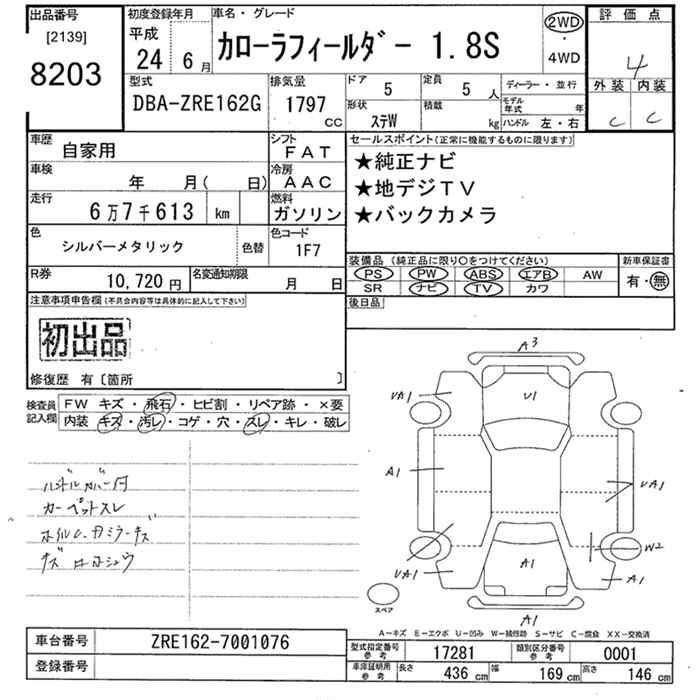 出品番号
[2139]
8203
初度登録年月
平成
24 6月
車名・グレード
カローラフィールダー 1.8S
2WD
・
4WD
評価点
4
外装 内装
C C
型式
DBA-ZRE162G
排気量
1797
CC
ドア
5
定員
5 人
形状
ステW
積載
kg
ディーラー・並行
モデル年式 年
ハンドル 左・右
車歴
自家用
シフト
FAT
車検
年 月( 日)
冷房
AAC
走行
6万7千613 km
燃料
ガソリン
色
シルバーメタリック
色替
色コード
1F7
R券
10,720円
名変通知期限
月 日
セールスポイント(正常に機能するものに限ります)
★純正ナビ
★地デジTV
★バックカメラ
装備品(純正品に限り○をつけてください)
PS PW ABS エアB AW
SR ナビ TV カワ
新車保証書
有・無
後日品
注意事項申告欄(不具合内容等は具体的に記入して下さい)
初出品
修復歴 有〔箇所 〕
検査員
記入欄
FW キズ・飛石・ヒビ割・リペア跡・×要
内装 キズ・汚レ・コゲ・穴・スレ・キレ・破レ
ハンドルカバー付
カーペットスレ
ホイルC、ドアミラーキズ
A3
UA1
U1
A1
UA1
W2
UA1
A1
A1
A1
スペア
A−キズ E−エクボ U−凹み W−補修跡 S−サビ C−腐食 XX−交換済
車台番号
ZRE162-7001076
登録番号
型式指定番号
参考
17281
類別区分番号
参考
0001
車庫証明用
参考
長さ
436 cm
幅
169 cm
高さ
146 cm